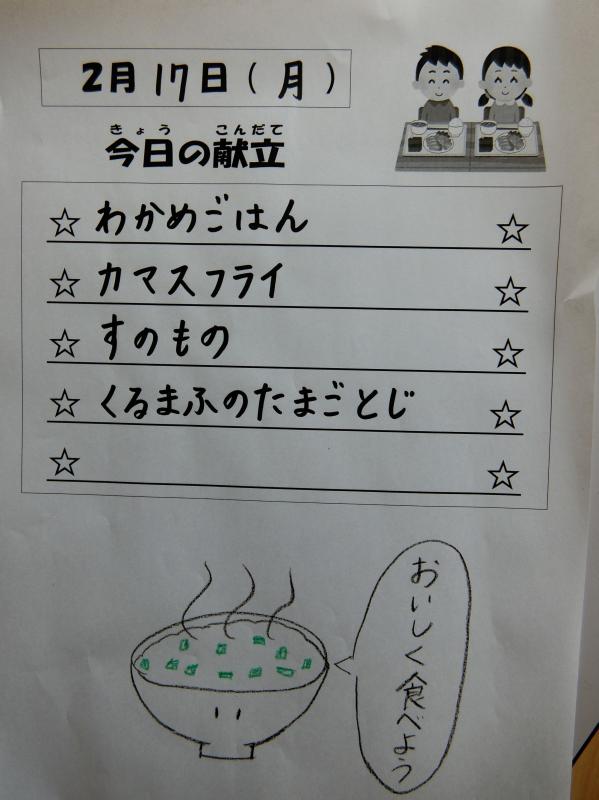 2月17日(月)
きょう こんだて
今日の献立
☆わかめごはん ☆
☆カマスフライ ☆
☆すのもの ☆
☆くるまふのたまごとじ ☆
☆ ☆
おいしく食べよう